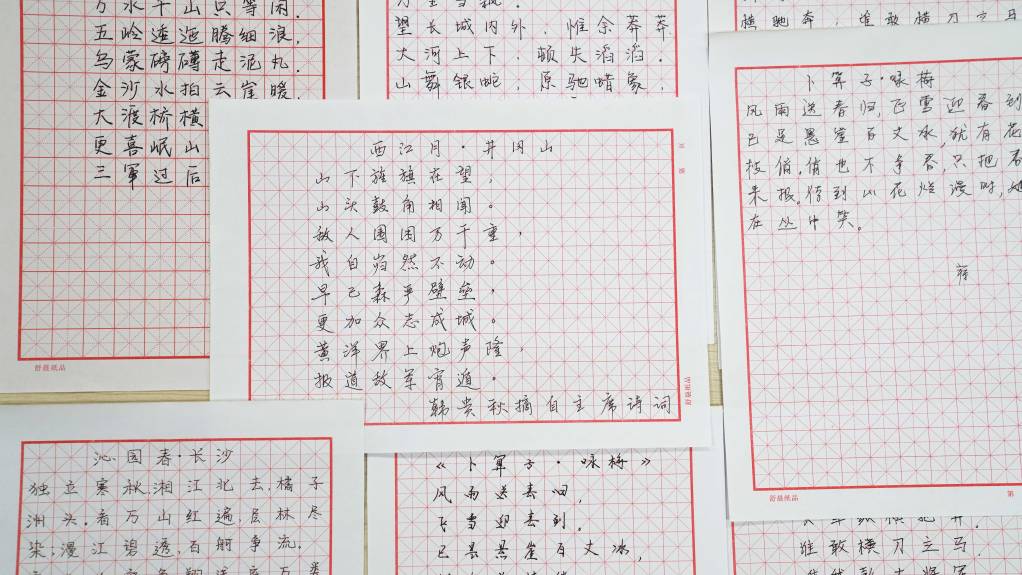 万水千山只等闲.
五岭逶迤腾细浪,
乌蒙磅礴走泥丸.
金沙水拍云崖暖,
大渡桥横
更喜岷山
三军过后
舒晨纸品
望长城内外,惟余莽莽
大河上下,顿失滔滔.
山舞银蛇,原驰蜡象,
横驰奔,谁敢横刀立马
卜算子·咏梅
风雨送春归,飞雪迎春到
已是悬崖百丈冰,犹有花
枝俏.俏也不争春,只把春
来报.待到山花烂漫时,她
在丛中笑.
舒晨纸品
第
西江月·井冈山
山下旌旗在望,
山头鼓角相闻。
敌人围困万千重,
我自岿然不动。
早已森严壁垒,
更加众志成城。
黄洋界上炮声隆,
报道敌军宵遁。
韩贵秋摘自主席诗词
舒晨纸品
沁园春·长沙
独立寒秋,湘江北去,橘子
洲头.看万山红遍,层林尽
染;漫江碧透,百舸争流.
《卜算子·咏梅》
风雨送春归,
飞雪迎春到.
已是悬崖百丈冰,
谁敢横刀立马